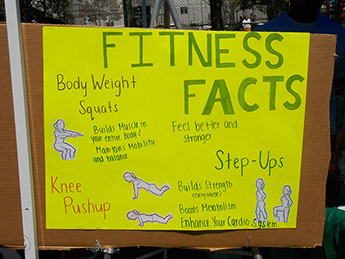 FITNESS
FACTS
Body Weight
Squats
Builds Muscle in
your entire Body!
Maintains Mobility
and balance
Feel better and
stronger
Step-Ups
Knee
Pushup
Builds Strength
Boosts Metabolism
Enhance Your Cardio System